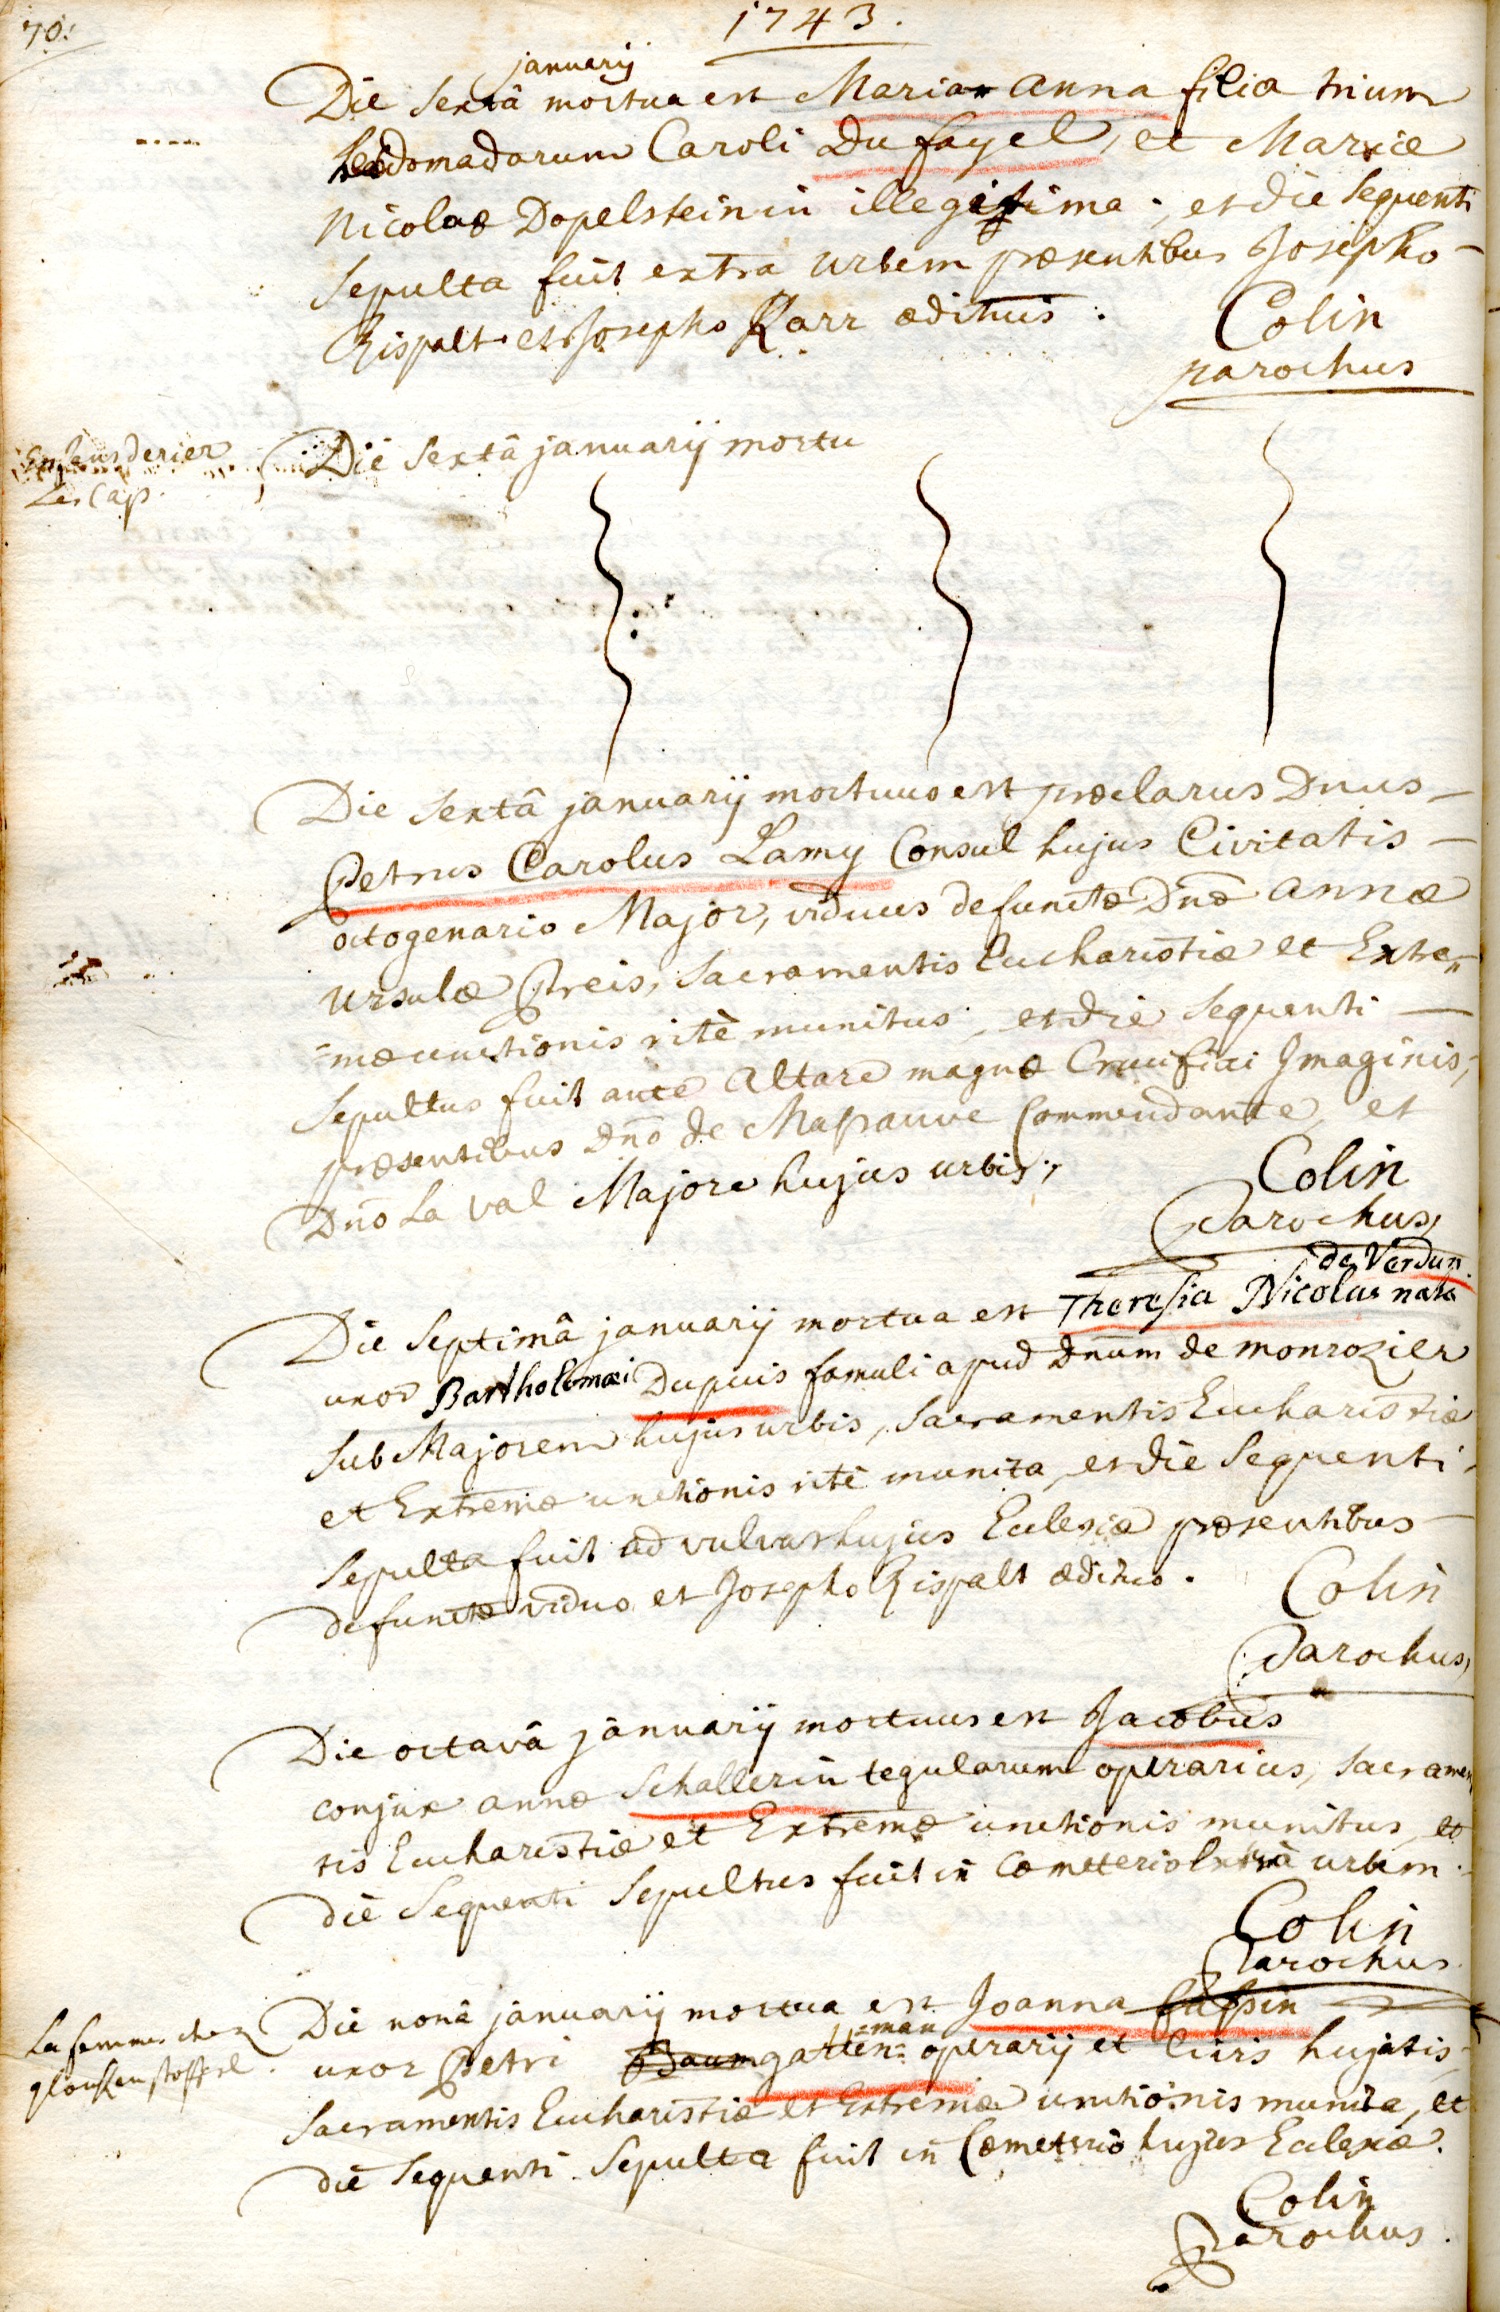 70.
1743.
januarij
Die Sextâ mortua est Maria Anna filia trium
hebdomadarum Caroli Du fayel, et Mariæ
Nicolae Dopelsteinin illegitima, et die Sequenti
Sepulta fuit extra Urbem præsentibus Josepho
Rispalt et Josepho Karr ædituis.
Colin
parochus
Die Sextâ januarij mortu
Les Cap.
Die Sextâ januarij mortuus est præclarus Dnus
Petrus Carolus Lamy Consul hujus Civitatis
octogenario Major, viduus defunctæ Dnæ Annæ
Ursulæ Preis, Sacramentis Eucharistiæ et Extre=
=mæ unctionis ritè munitus, et die Sequenti
Sepultus fuit ante Altare magnæ Crucifixi Imaginis,
præsentibus Dno de Maprauve Commendante, et
Dno La val Majore hujus urbis.
Colin
Parochus,
de Verdun.
Die Septimâ januarij mortua est Theresia Nicolas nata
uxor Bartholomæi Dupuis famuli apud Dnum de monrozier
Sub Majorem hujus urbis, Sacramentis Eucharistiæ
et Extremæ unctionis ritè munita, et die Sequenti
Sepulta fuit ad vulvas hujus Eclesiæ præsentibus
defunctæ viduo et Josepho Rispalt ædituo.
Colin
Parochus,
Die octavâ januarij mortuus est Jacobus
conjux annæ Schallerin tegularum operarius, Sacramen
tis Eucharistiæ et Extremæ unctionis munitus, et
die Sequenti Sepultus fuit in Cœmeterio Extrà urbem.
Colin
Parochus
La femme chez
glouken stoffel.
Die nonâ januarij mortua est Joanna Caspin
=man
uxor Petri Baumgarten= operarij et Civis hujatis,
Sacramentis Eucharistiæ et Extremæ unctionis munita, et
die Sequenti Sepulta fuit in Cœmeterio hujus Eclesiæ.
Colin
Parochus.